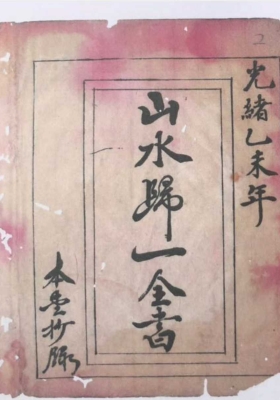 光緒乙未年
山水歸一全書
本堂抄謄